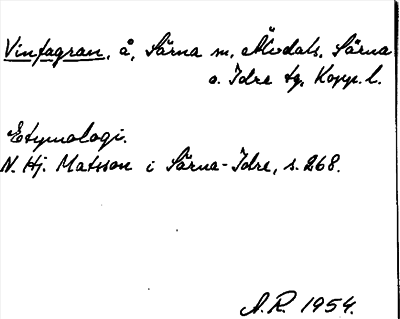 Vintagran, å, Särna sn, Älvdals, Särna
o. Idre tg, Kopp. l.
Etymologi.
N. Hj. Matsson i Särna-Idre, s. 268.
A.R. 1954.